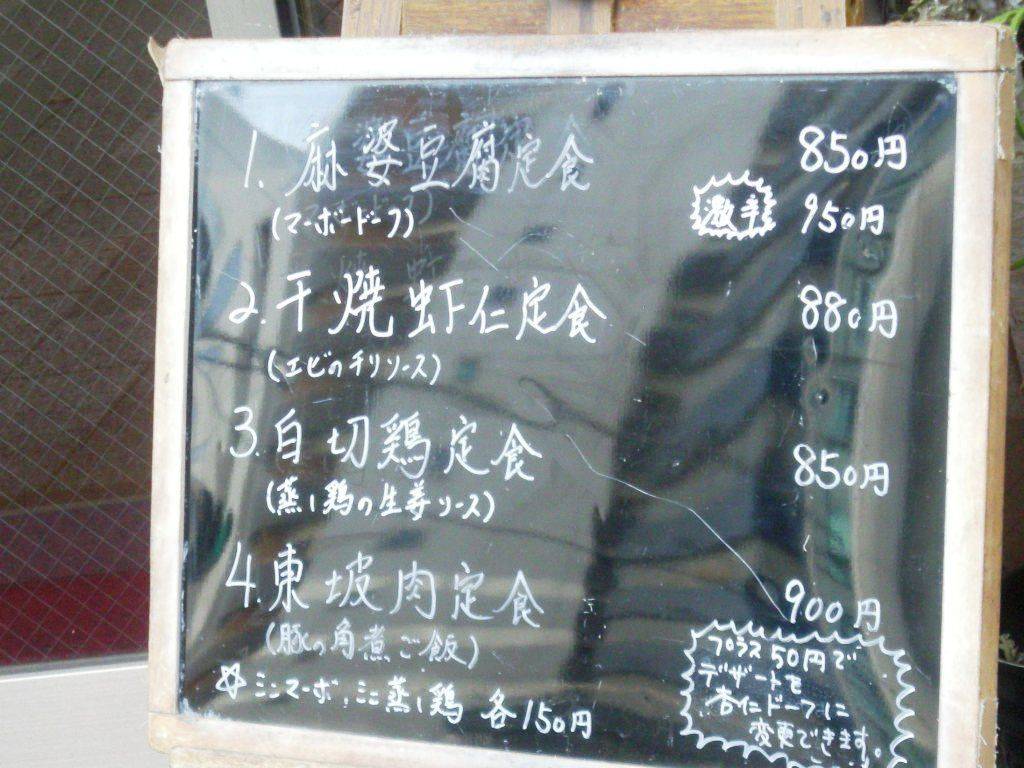 1. 麻婆豆腐定食 850円
(マーボードーフ) 激辛 950円
2. 干焼虾仁定食 880円
(エビのチリソース)
3. 白切鶏定食 850円
(蒸し鶏の生姜ソース)
4. 東坡肉定食 900円
(豚の角煮ご飯)
☆ミニマーボ,ミニ蒸し鶏 各150円
プラス50円で
デザートを
杏仁ドーフに
変更できます。